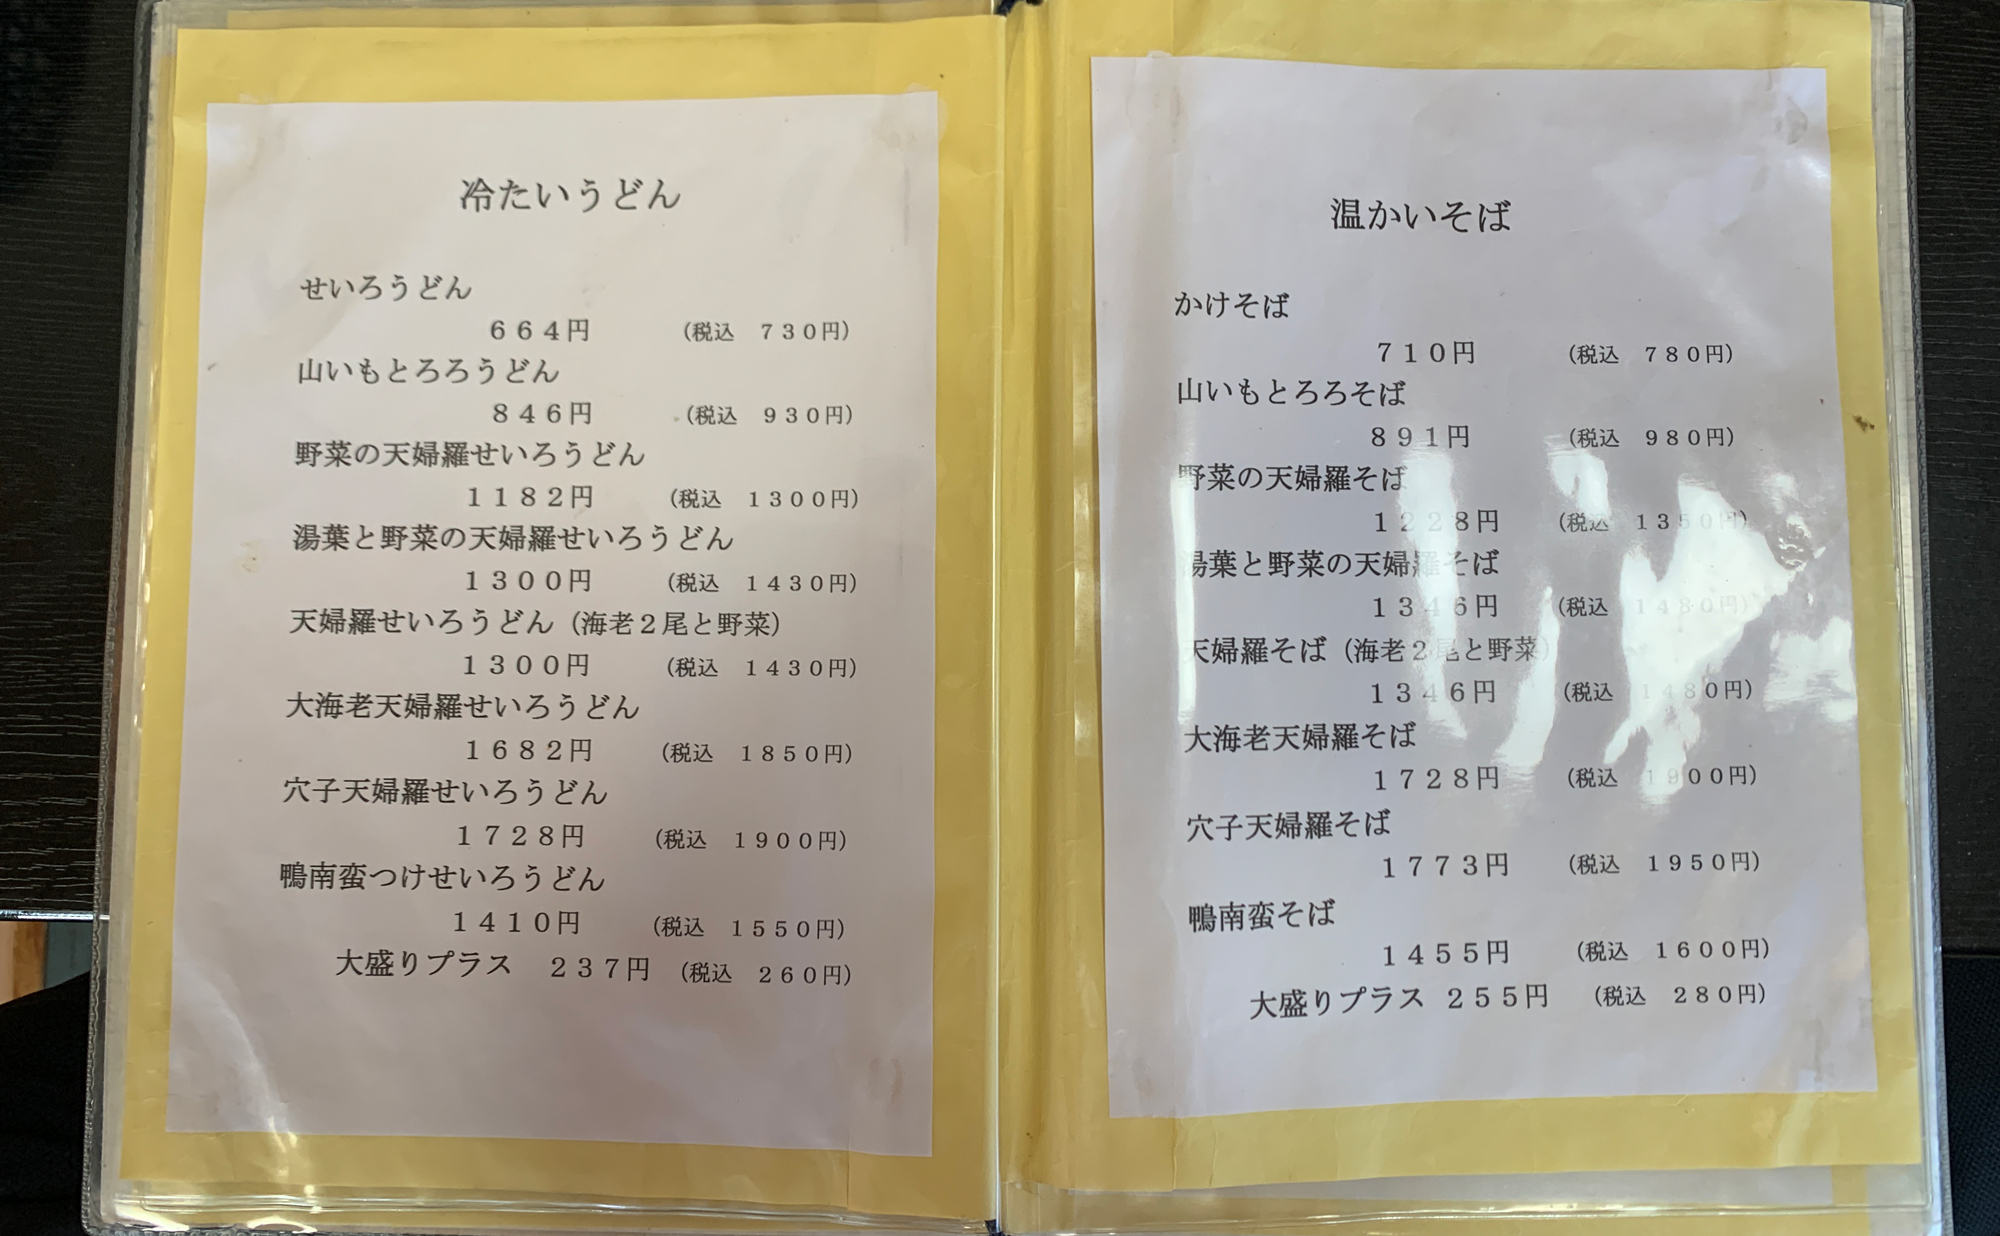 冷たいうどん
せいろうどん
６６４円 （税込　７３０円）
山いもとろろうどん
８４６円 （税込　９３０円）
野菜の天婦羅せいろうどん
１１８２円 （税込　１３００円）
湯葉と野菜の天婦羅せいろうどん
１３００円 （税込　１４３０円）
天婦羅せいろうどん（海老２尾と野菜）
１３００円 （税込　１４３０円）
大海老天婦羅せいろうどん
１６８２円 （税込　１８５０円）
穴子天婦羅せいろうどん
１７２８円 （税込　１９００円）
鴨南蛮つけせいろうどん
１４１０円 （税込　１５５０円）
大盛りプラス　２３７円 （税込　２６０円）
温かいそば
かけそば
７１０円 （税込　７８０円）
山いもとろろそば
８９１円 （税込　９８０円）
野菜の天婦羅そば
１２２８円 （税込　１３５０円）
湯葉と野菜の天婦羅そば
１３４６円 （税込　１４８０円）
天婦羅そば（海老２尾と野菜）
１３４６円 （税込　１４８０円）
大海老天婦羅そば
１７２８円 （税込　１９００円）
穴子天婦羅そば
１７７３円 （税込　１９５０円）
鴨南蛮そば
１４５５円 （税込　１６００円）
大盛りプラス　２５５円 （税込　２８０円）